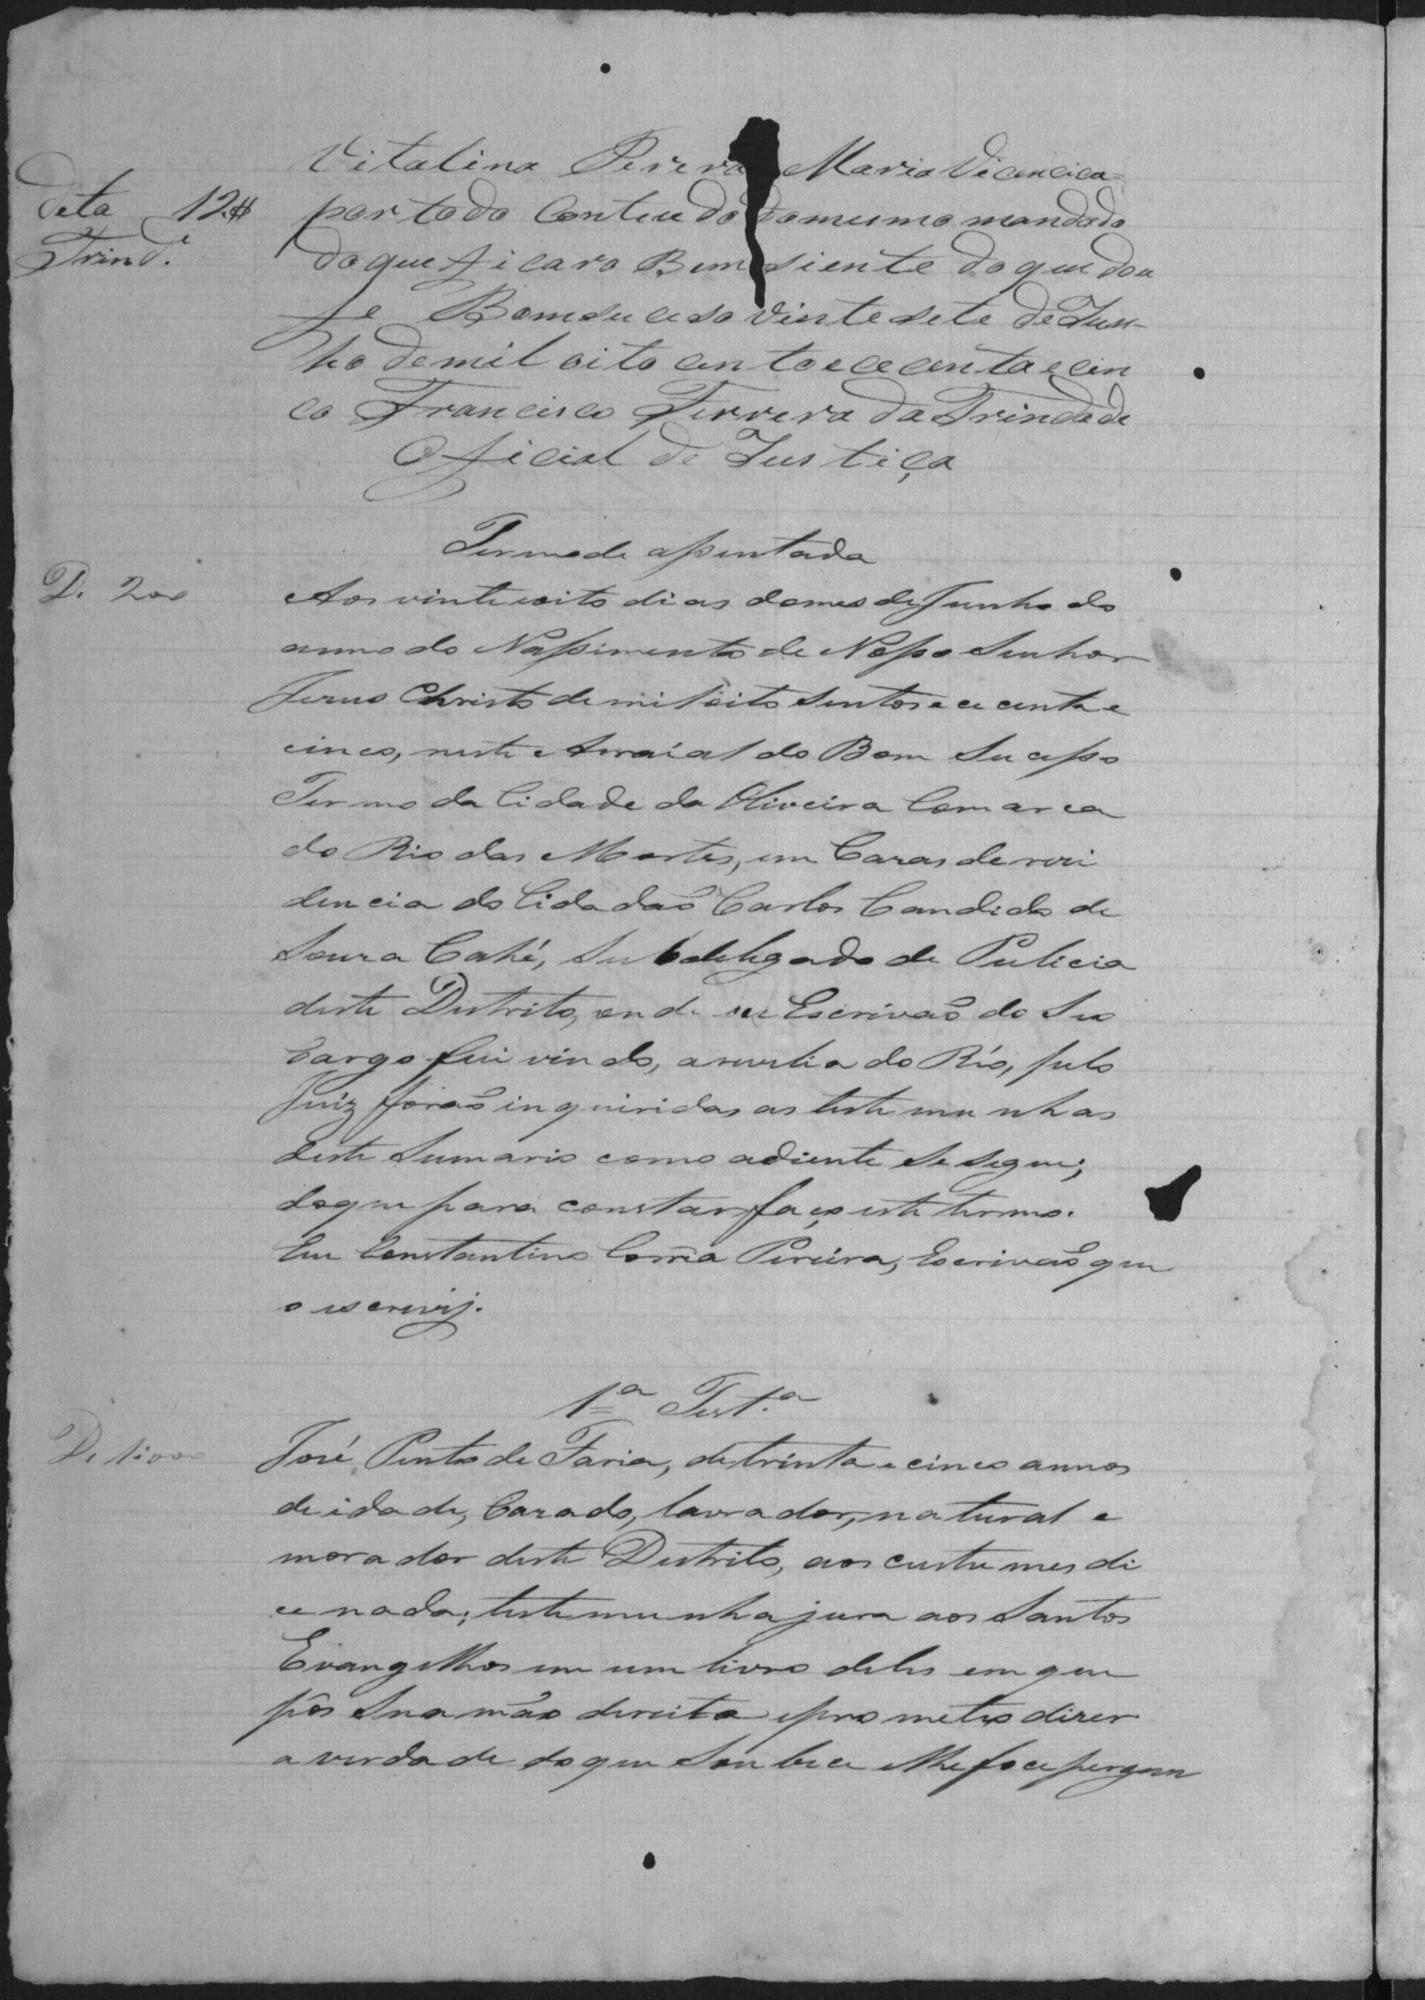 Vitalina Perera Maria Vicencica
deta 12$ por todo Conteudo do mesmo mandado
Trind.e do que ficaro Bem siente do que dou
fe Bomsuceso vinte sete de Jun-
ho de mil oito cento e cecenta e cin
co Francisco Ferrera da Trindade
Oficial de Justiça
Termo de assentada
D. 200 Aos vinte e oito dias do mes de Junho do
anno do Nassimento de Nosso Senhor
Jesus Christo de mil oito sentos e cecenta e
cinco, neste Arraial do Bom Sucesso
Termo da Cidade da Oliveira Comarca
do Rio das Mortes, em Casas de resi
dencia do Cidadaõ Carlos Candido de
Souza, Subdelegado de Pulicia
deste Destrito, onde eu Escrivaõ do Seo
Cargo fui vindo, a revelia do Réo, pelo
Juiz foraõ inquiridas as testemunhas
deste Sumario como adiente Se segue;
do que para constar faço este termo.
Eu Constantino Corrêa Pereira, Escrivaõ que
o escrevij.
1ª Test.ª
D. 1:000 José Pinto de Faria, de trinta e cinco annos
de idade, Casado, lavrador, natural e
morador deste Destrito, aos custumes di
ce nada; testemunha jura aos Santos
Evangelhos em um livro deles em que
pôs Sua mão dereita e prometeo dizer
a verdade do que Soubece e lhe foce pergun